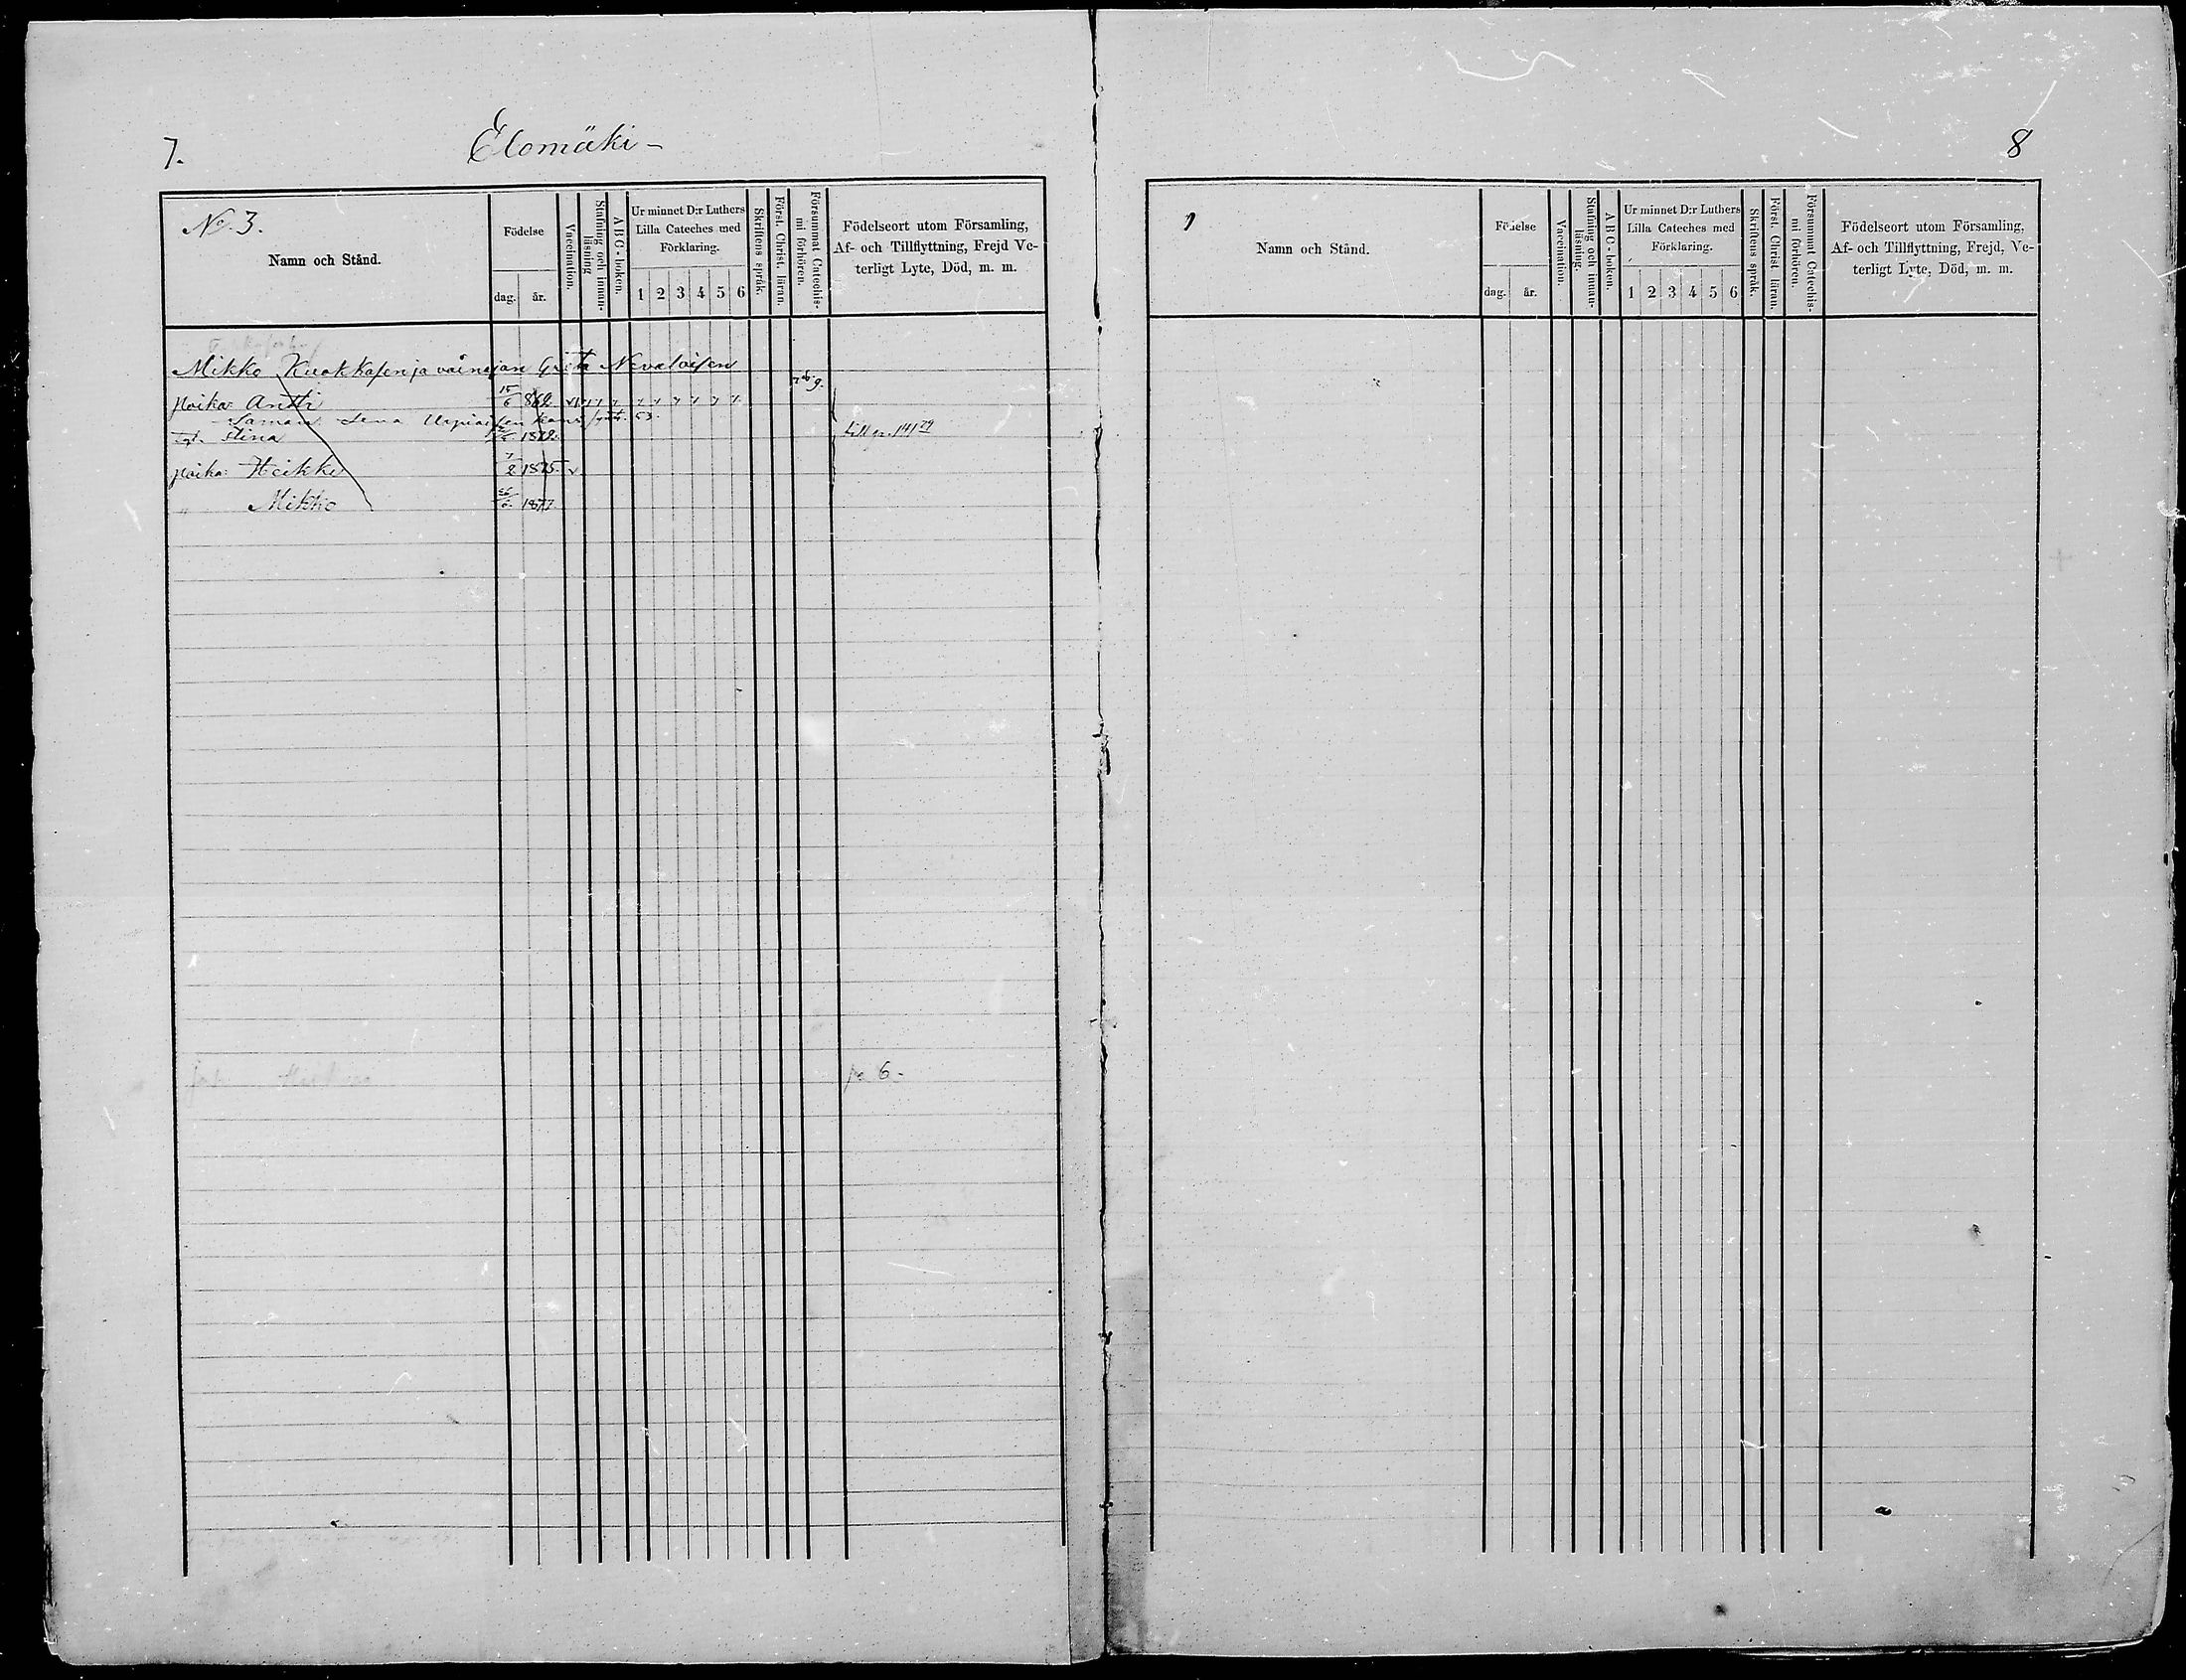 7.
Elomäki -
No. 3.
Namn och Stånd.
Födelse
dag.
år.
Vaccination.
Stafning och innan-
läsning
ABC-boken.
Ur minnet D:r Luthers
Lilla Cateches med
Förklaring.
1 2 3 4 5 6
Skriftens språk.
Först. Christ. läran.
Försummat Catechis-
mi förhören.
Födelseort utom Församling,
Af- och Tillflyttning, Frejd Ve-
terligt Lyte, Död, m. m.
Mikko Kuokkasen ja vainajan Greta Nevalaisen
poika: Antti 15/6 869.
Saman Lena kans
Stina 1872. till 141 79
poika: Heikki 7/2 1875.
" Mikko 26/2 1877
6.-
8
Namn och Stånd.
Födelse
dag.
år.
Vaccination.
Stafning och innan-
läsning.
ABC-boken.
Ur minnet D:r Luthers
Lilla Cateches med
Förklaring.
1 2 3 4 5 6
Skriftens språk.
Först. Christ läran.
Försummat Catechis-
mi förhören.
Födelseort utom Församling,
Af- och Tillflyttning, Frejd, Ve-
terligt Lyte, Död, m. m.